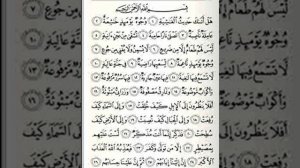 بِسْمِ اللَّهِ الرَّحْمَٰنِ الرَّحِيمِ
هَلْ أَتَىٰكَ حَدِيثُ الْغَاشِيَةِ ١ وُجُوهٌ يَوْمَئِذٍ خَاشِعَةٌ ٢
عَامِلَةٌ نَّاصِبَةٌ ٣ تَصْلَىٰ نَارًا حَامِيَةً ٤ تُسْقَىٰ مِنْ عَيْنٍ آنِيَةٍ ٥
لَّيْسَ لَهُمْ طَعَامٌ إِلَّا مِن ضَرِيعٍ ٦ لَّا يُسْمِنُ وَلَا يُغْنِي مِن جُوعٍ ٧
وُجُوهٌ يَوْمَئِذٍ نَّاعِمَةٌ ٨ لِّسَعْيِهَا رَاضِيَةٌ ٩ فِي جَنَّةٍ عَالِيَةٍ ١٠
لَّا تَسْمَعُ فِيهَا لَاغِيَةً ١١ فِيهَا عَيْنٌ جَارِيَةٌ ١٢ فِيهَا سُرُرٌ مَّرْفُوعَةٌ ١٣
وَأَكْوَابٌ مَّوْضُوعَةٌ ١٤ وَنَمَارِقُ مَصْفُوفَةٌ ١٥ وَزَرَابِيُّ مَبْثُوثَةٌ ١٦
أَفَلَا يَنظُرُونَ إِلَى الْإِبِلِ كَيْفَ خُلِقَتْ ١٧ وَإِلَى السَّمَاءِ كَيْفَ
رُفِعَتْ ١٨ وَإِلَى الْجِبَالِ كَيْفَ نُصِبَتْ ١٩ وَإِلَى الْأَرْضِ كَيْفَ
سُطِحَتْ ٢٠ فَذَكِّرْ إِنَّمَا أَنتَ مُذَكِّرٌ ٢١ لَّسْتَ عَلَيْهِم